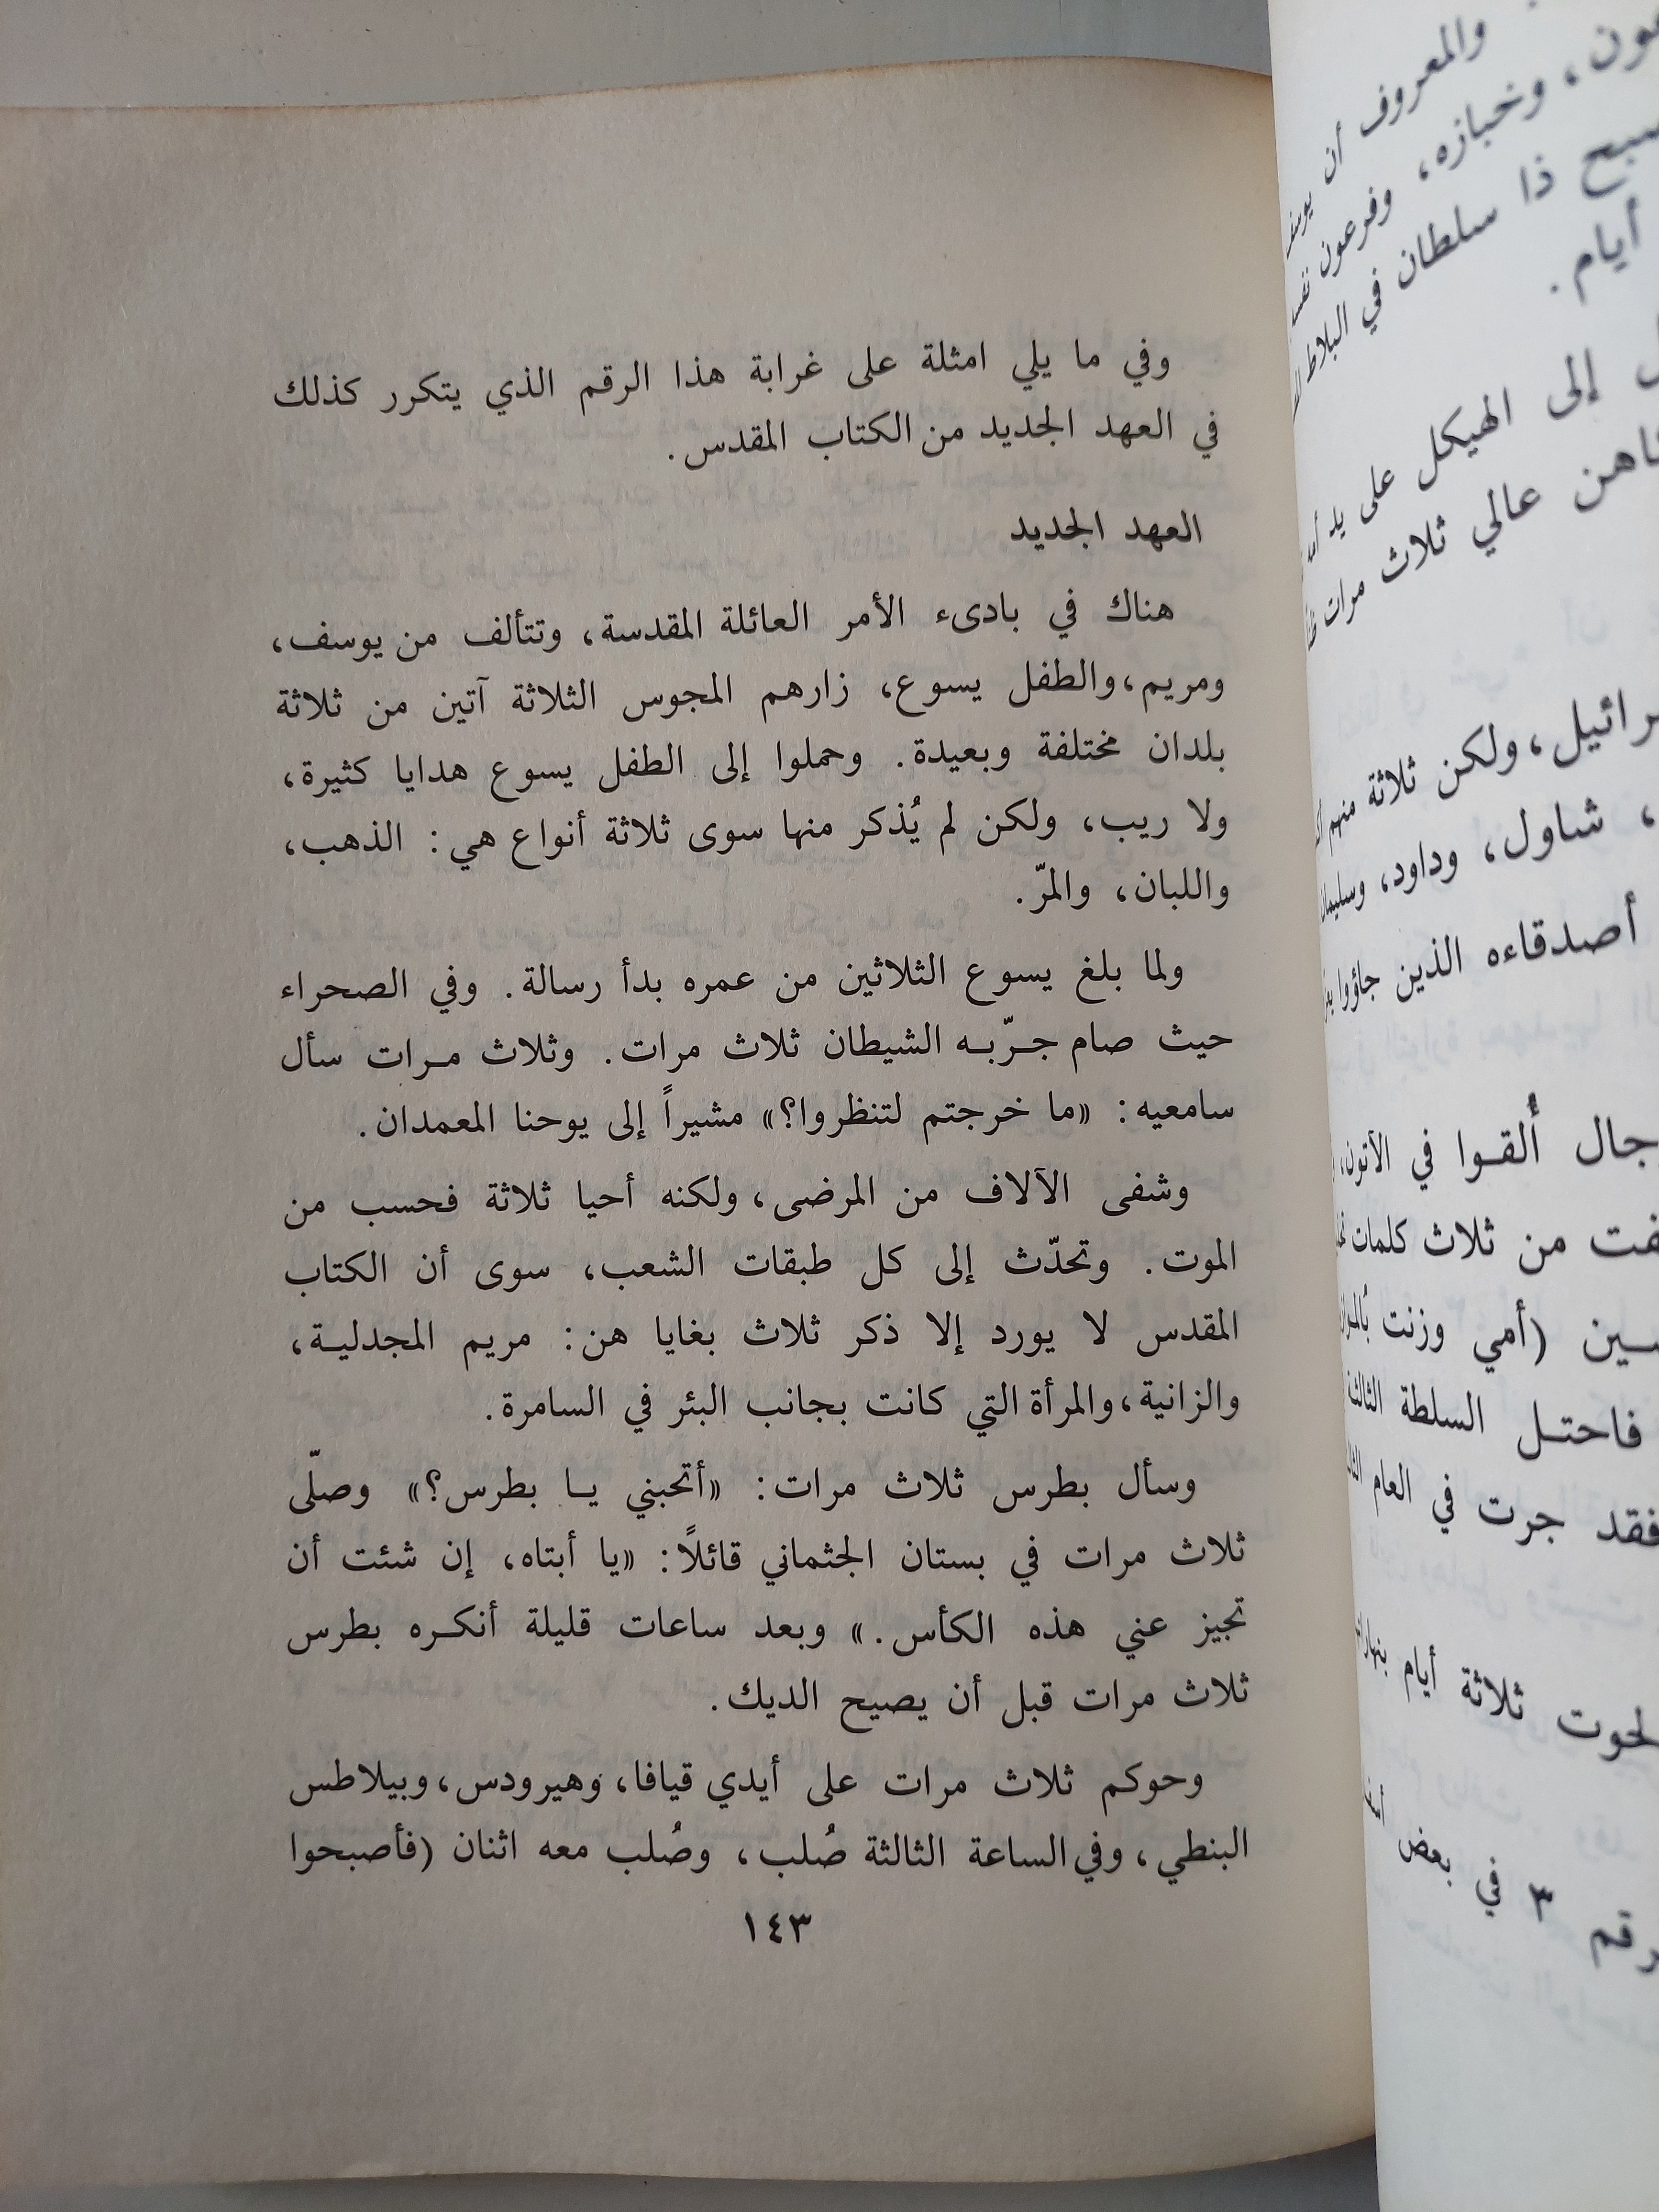 وفي ما يلي امثلة على غرابة هذا الرقم الذي يتكرر كذلك
في العهد الجديد من الكتاب المقدس.
العهد الجديد
هناك في بادىء الأمر العائلة المقدسة، وتتألف من يوسف،
ومريم، والطفل يسوع، زارهم المجوس الثلاثة آتين من ثلاثة
بلدان مختلفة وبعيدة. وحملوا إلى الطفل يسوع هدايا كثيرة،
ولا ريب، ولكن لم يُذكر منها سوى ثلاثة أنواع هي: الذهب،
واللبان، والمرّ.
ولما بلغ يسوع الثلاثين من عمره بدأ رسالة. وفي الصحراء
حيث صام جرّبه الشيطان ثلاث مرات. وثلاث مرات سأل
سامعيه: «ما خرجتم لتنظروا؟» مشيراً إلى يوحنا المعمدان.
وشفى الآلاف من المرضى، ولكنه أحيا ثلاثة فحسب من
الموت. وتحدّث إلى كل طبقات الشعب، سوى أن الكتاب
المقدس لا يورد إلا ذكر ثلاث بغايا هن: مريم المجدلية،
والزانية، والمرأة التي كانت بجانب البئر في السامرة.
وسأل بطرس ثلاث مرات: «أتحبني يا بطرس؟» وصلّى
ثلاث مرات في بستان الجثماني قائلاً: «يا أبتاه، إن شئت أن
تجيز عني هذه الكأس.» وبعد ساعات قليلة أنكره بطرس
ثلاث مرات قبل أن يصيح الديك.
وحوكم ثلاث مرات على أيدي قيافا، وهيرودس، وبيلاطس
البنطي، وفي الساعة الثالثة صُلب، وصُلب معه اثنان (فأصبحوا
١٤٣
والمعروف أن
وخبازه، وفرعون
ذا سلطان في البلاط
أيام.
إلى الهيكل على يد
عالي ثلاث مرات
ولكن ثلاثة منهم
، شاول، وداود،
أصدقاءه الذين جاؤوا
ألقوا في الأتون،
من ثلاث كلمات
(أمي وزنت
فاحتل السلطة الثالثة
فقد جرت في العام
ثلاثة أيام
في بعض
٣